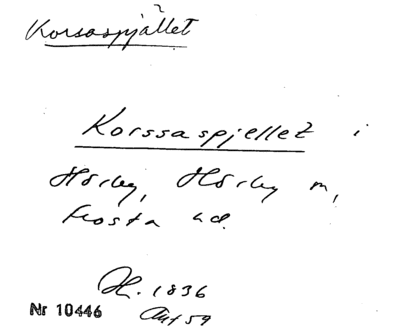 Korsaspjället
Korssaspjellet i
Hörby, Hörby m,
Frosta hd.
H. 1836
Nr 10446
Akt 59